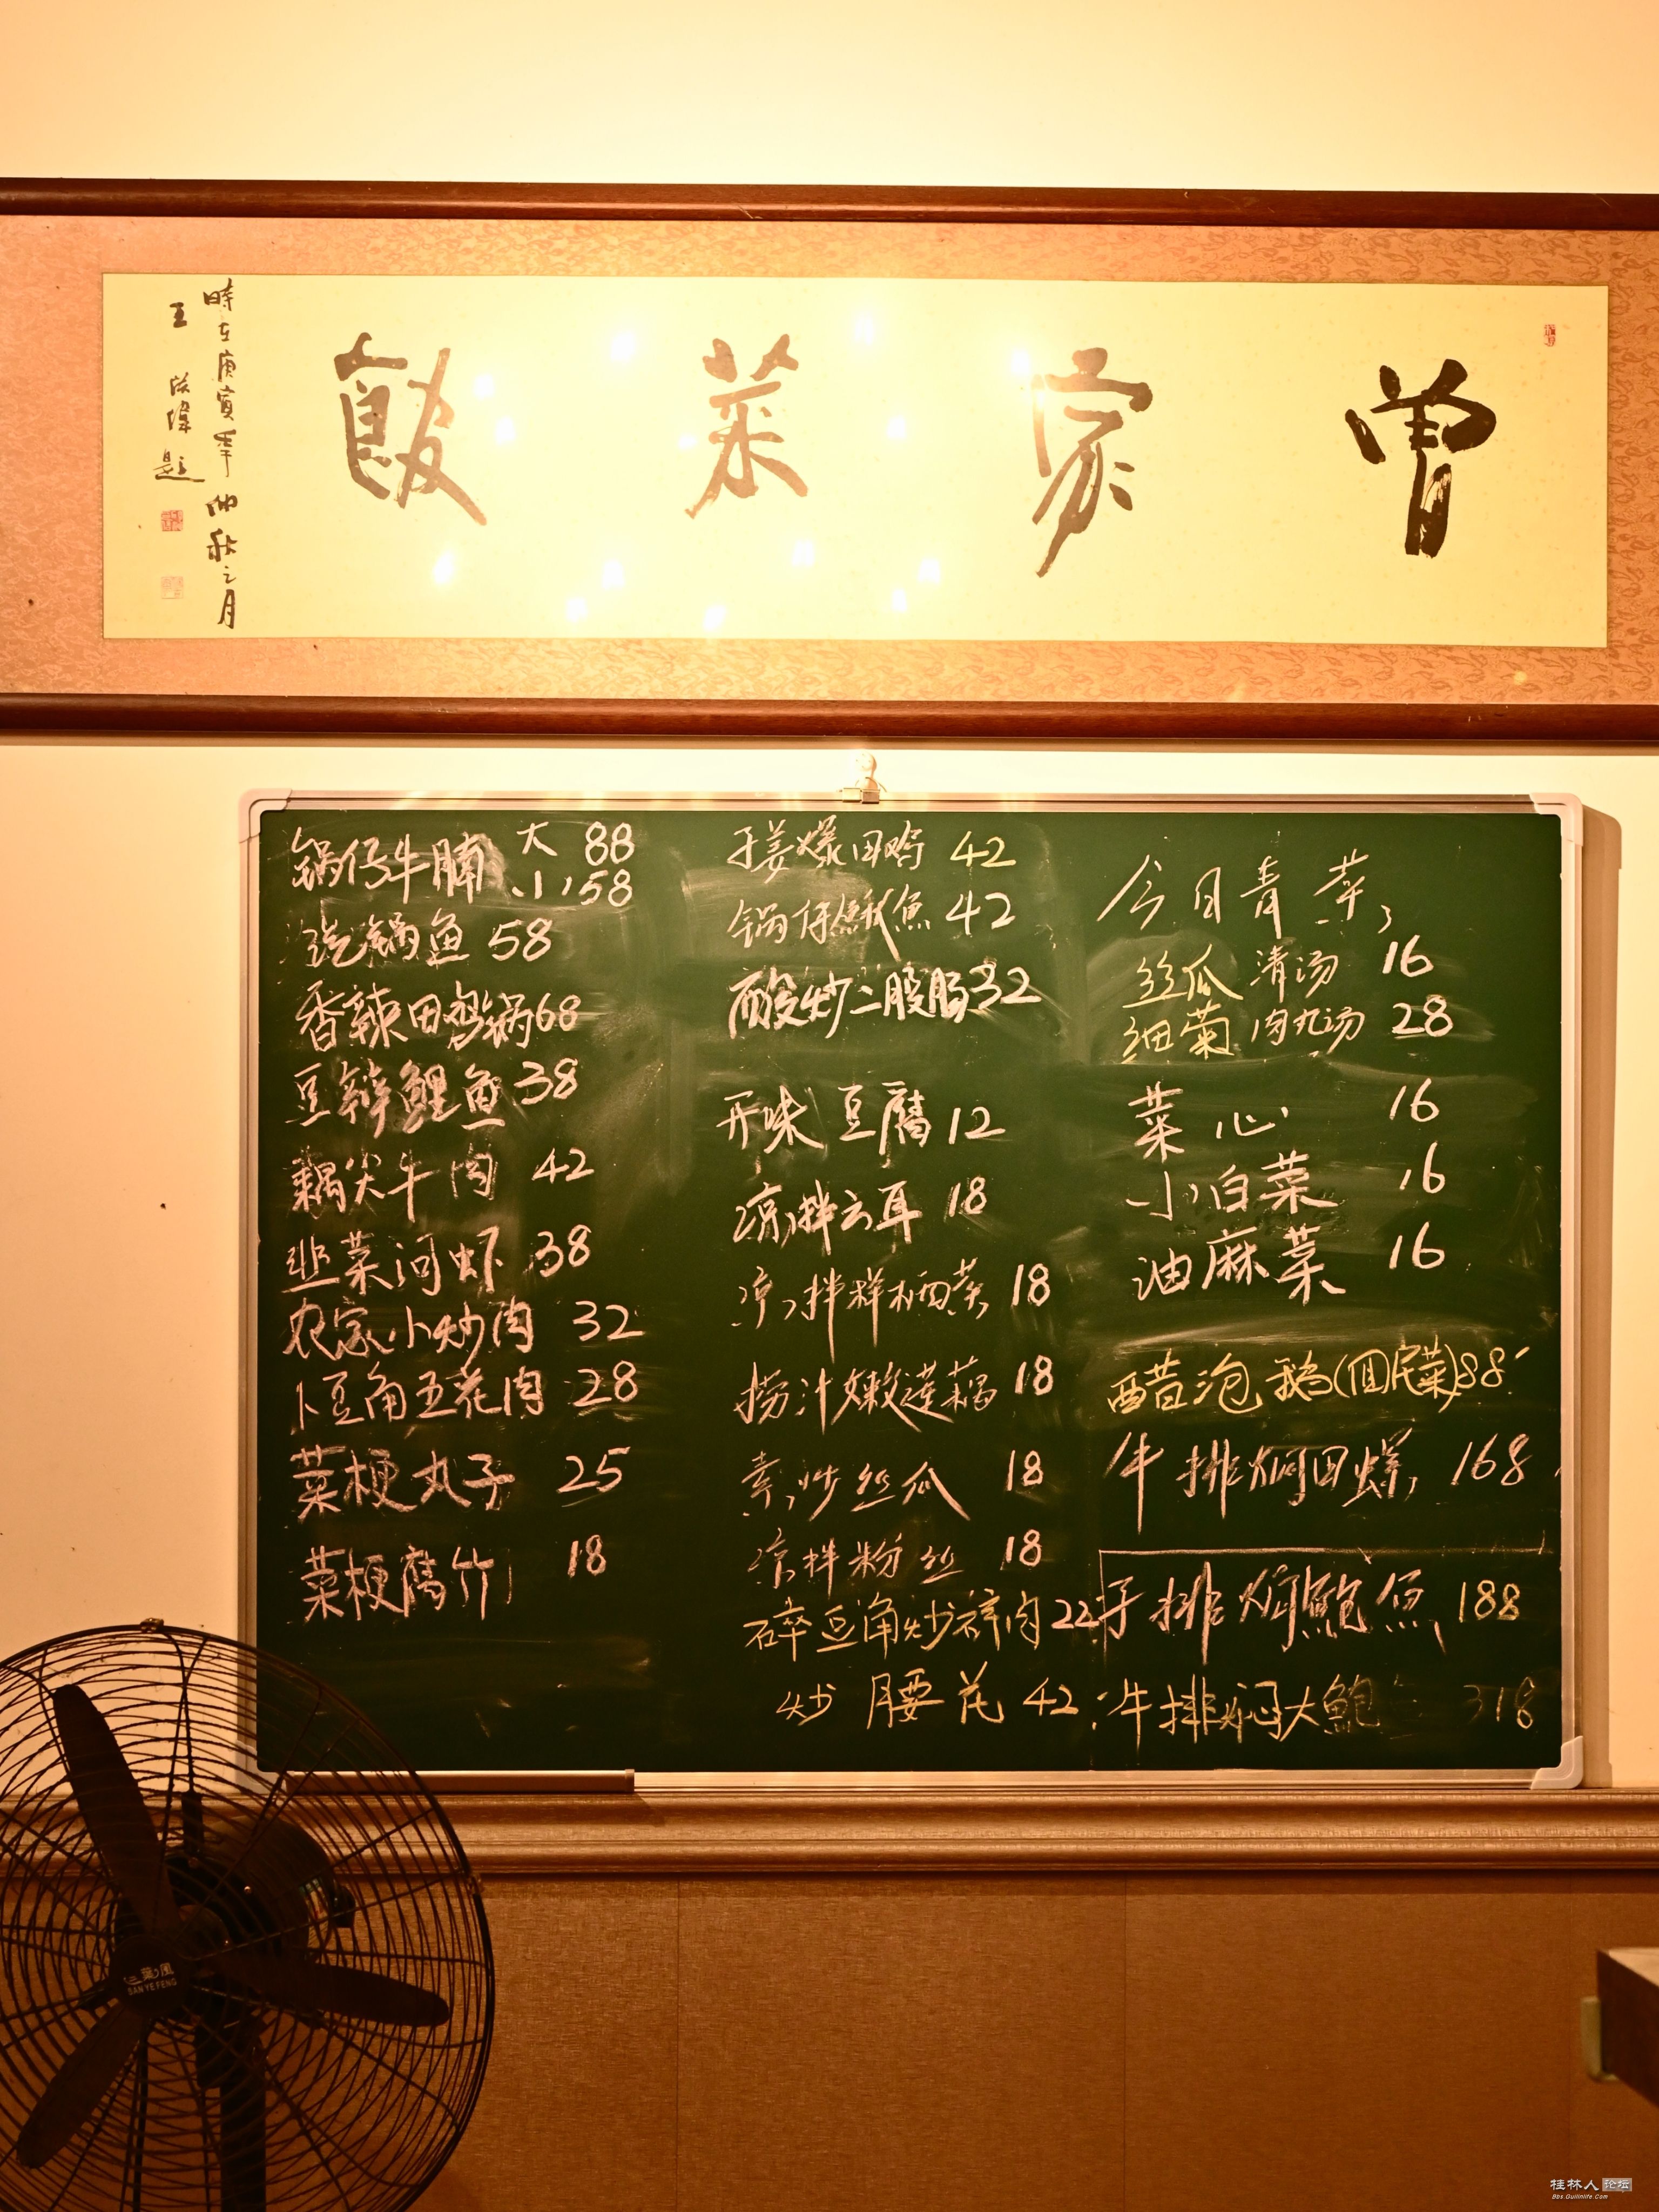 曾家菜館
時在庚寅年仲秋之月
王 偉題
锅仔牛腩 大 88
小 58
汽锅鱼 58
香辣田鸡锅 68
豆瓣鲤鱼 38
藕尖牛肉 42
韭菜河虾 38
农家小炒肉 32
卜豆角五花肉 28
菜梗丸子 25
菜梗腐竹 18
子姜爆田鸡 42
锅仔鳅魚 42
酸炒三股肠 32
开味豆腐 12
凉拌云耳 18
凉拌 菜 18
捞汁嫩莲藕 18
素炒丝瓜 18
凉拌粉丝 18
碎豆角炒碎肉 22
炒腰花 42
今日青菜
丝瓜清汤 16
细菊肉丸汤 28
菜心 16
小白菜 16
油麻菜 16
醋泡鹅(回民菜) 88
牛排焖田螺 168
牛排焖鲍鱼 188
牛排焖大鲍 318
三葉風
SAN YE FENG
桂林人论坛
Bbs.Guilinlife.Com